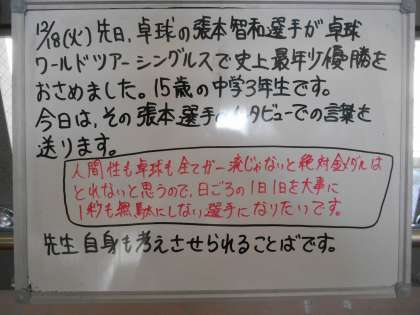 12/18(火)先日、卓球の張本智和選手が卓球
ワールドツアーシングルスで史上最年少優勝を
おさめました。15歳の中学3年生です。
今日は、その張本選手のインタビューでの言葉を
送ります。
人間性も卓球も全てが一流じゃないと絶対金メダルは
とれないと思うので、日ごろの1日1日を大事に
1秒も無駄にしない選手になりたいです。
先生自身も考えさせられることばです。